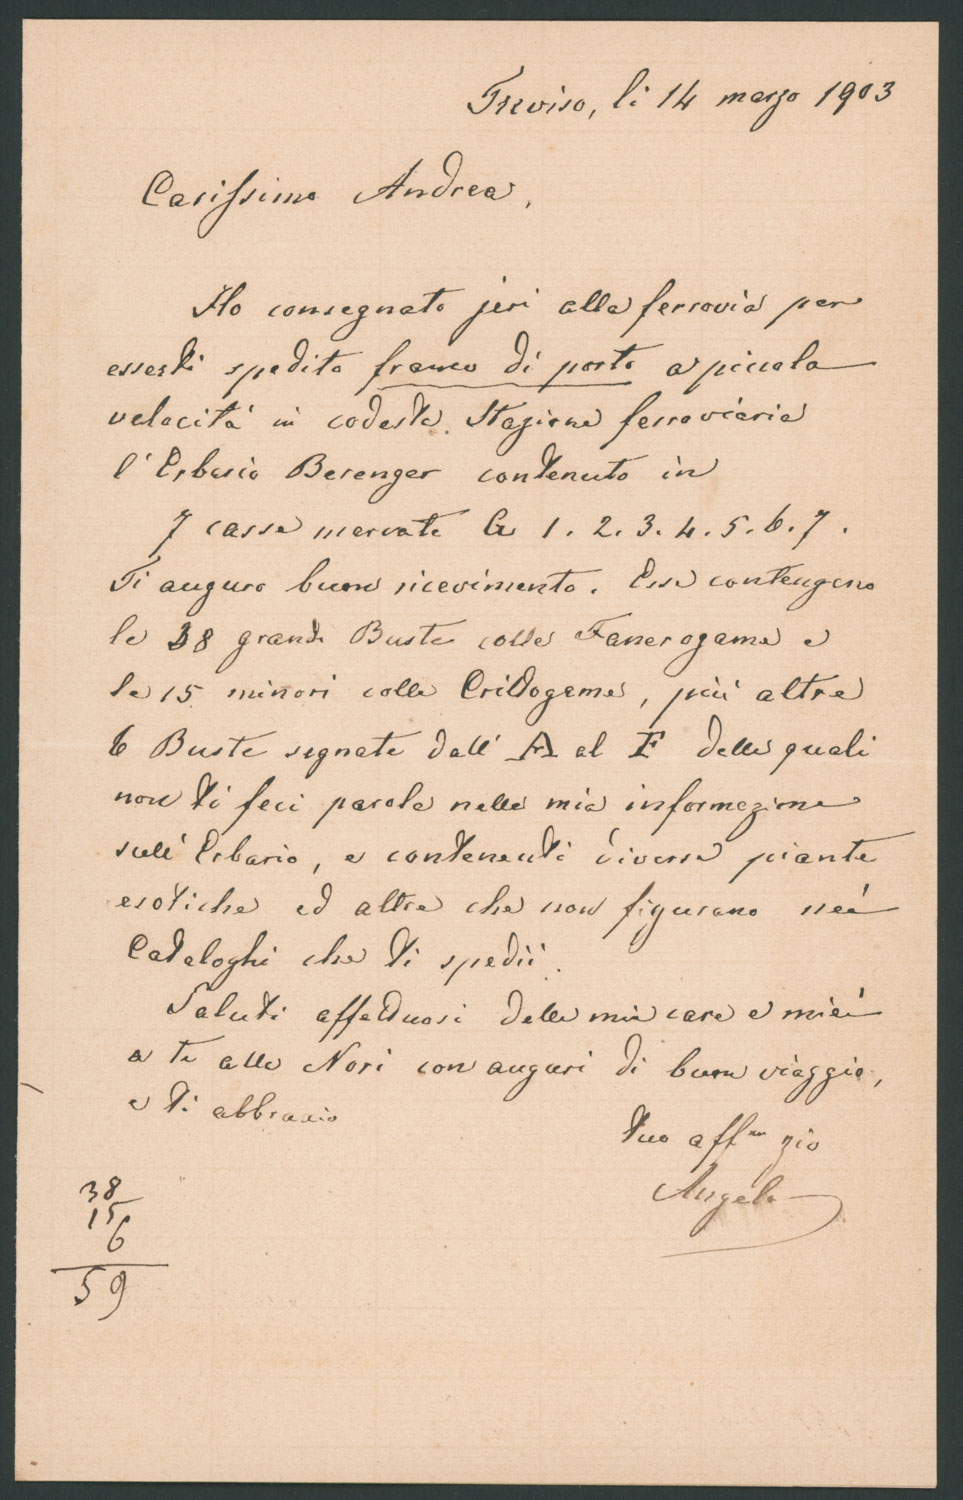 Treviso, li 14 marzo 1903
Carissimo Andrea,
Ho consegnato jeri alla ferrovia per
esserti spedito franco di porto a piccola
velocità in codesta Stazione ferroviaria
l'Erbario Berenger contenuto in
7 casse marcate G 1. 2. 3. 4. 5. 6. 7.
Ti auguro buon ricevimento. Esse contengono
le 38 grandi Buste colle Fanerogame e
le 15 minori colle Crittogame, più altre
6 Buste segnate dall' A al F delle quali
non ti feci parola nella mia informazione
sull' Erbario, e contenenti diverse piante
esotiche ed altre che non figurano nei
Cataloghi che ti spedii.
Saluti affettuosi delle mie care e miei
a te alla Nori con auguri di buon viaggio,
e ti abbraccio
tuo aff.mo zio
Angelo
38
15
6
59